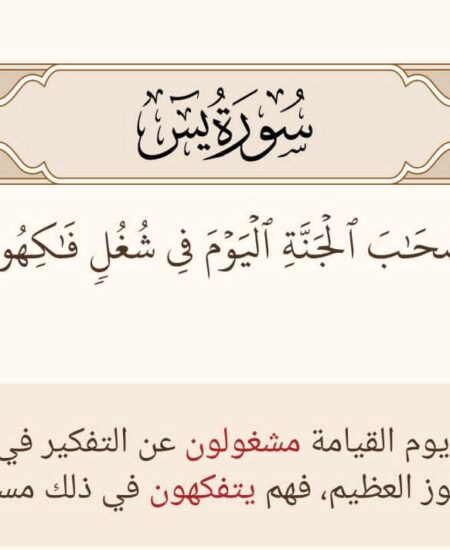 سُورَةُ يسٓ
صْحَٰبَ ٱلْجَنَّةِ ٱلْيَوْمَ فِى شُغُلٍ فَٰكِهُو
يوم القيامة مشغولون عن التفكير في
وز العظيم، فهم يتفكهون في ذلك مس